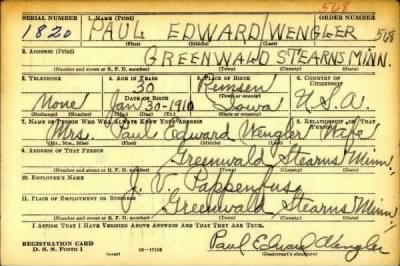 568
SERIAL NUMBER 1. NAME (Print) ORDER NUMBER
1820 PAUL EDWARD WENGLER 568
(First) (Middle) (Last)
2. ADDRESS (Print)
GREENWALD STEARNS MINN.
(Number and street or R. F. D. number) (Town) (County) (State)
3. TELEPHONE 4. AGE IN YEARS 5. PLACE OF BIRTH 6. COUNTRY OF CITIZENSHIP
30 Remsen
DATE OF BIRTH
None Jan 30-1910 Iowa U.S.A.
(Exchange) (Number) (Mo.) (Day) (Yr.) (State or country)
7. NAME OF PERSON WHO WILL ALWAYS KNOW YOUR ADDRESS 8. RELATIONSHIP OF THAT PERSON
Mrs. Paul Edward Wengler Wife
(Mr., Mrs., Miss) (First) (Middle) (Last)
9. ADDRESS OF THAT PERSON
Greenwald Stearns Minn.
(Number and street or R. F. D. number) (Town) (County) (State)
10. EMPLOYER'S NAME
J. V. Pappenfus
11. PLACE OF EMPLOYMENT OR BUSINESS
Greenwald Stearns Minn.
(Number and street or R. F. D. number) (Town) (County) (State)
I AFFIRM THAT I HAVE VERIFIED ABOVE ANSWERS AND THAT THEY ARE TRUE.
REGISTRATION CARD
D. S. S. Form 1 (over) Paul Edward Wengler
(Registrant's signature)